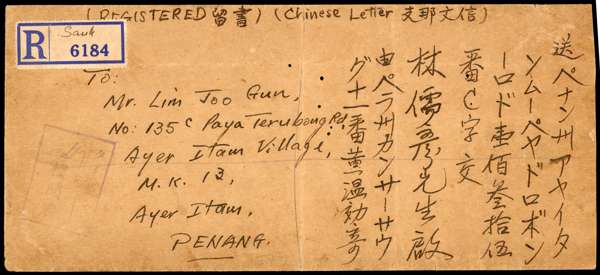 (REGISTERED 留書) (Chinese Letter 支那文信)
R Sauk 6184
To:
Mr. Lim Joo Gun,
No: 135C Paya Terubong Rd,
Ayer Itam Village,
M.K. 13,
Ayer Itam,
PENANG.
送ペナン州アヤイタ
ンムーペヤドロボン
ーロド壹佰叁拾伍
番C字交
林儒彥先生啟
由ペラ州カンサーサウ
グ十一番黄温効寄